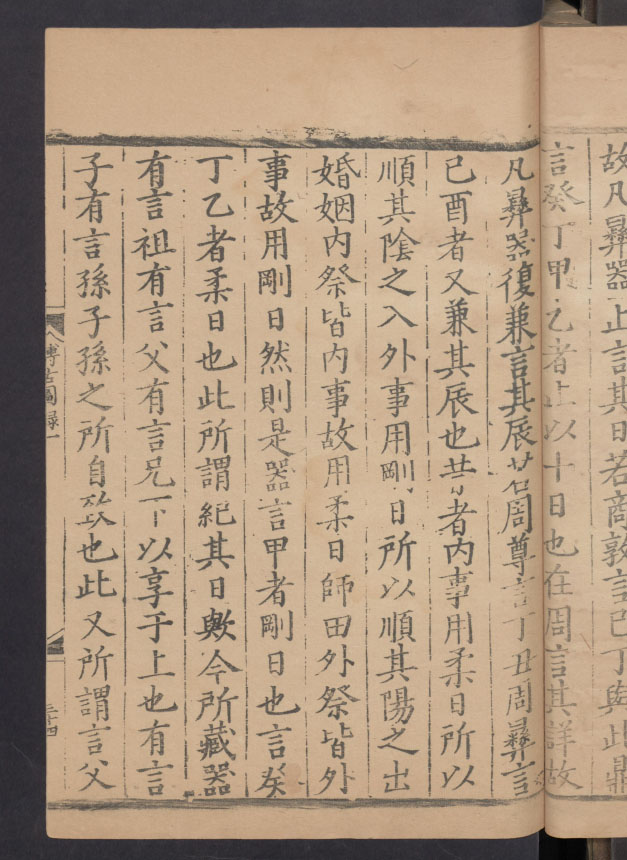 故凡彝器止言其日若商敦言己丁與此鼎
言癸丁甲乙者止以十日也在周言其詳故
凡彝器復兼言其辰若周尊言丁丑周彝言
己酉者又兼其辰也昔者内事用柔日所以
順其陰之入外事用剛日所以順其陽之出
婚姻内祭皆内事故用柔日師田外祭皆外
事故用剛日然則是器言甲者剛日也言癸
丁乙者柔日也此所謂紀其日歟今所藏器
有言祖有言父有言兄下以享于上也有言
子有言孫子孫之所自致也此又所謂言父
博古圖録一
三十四